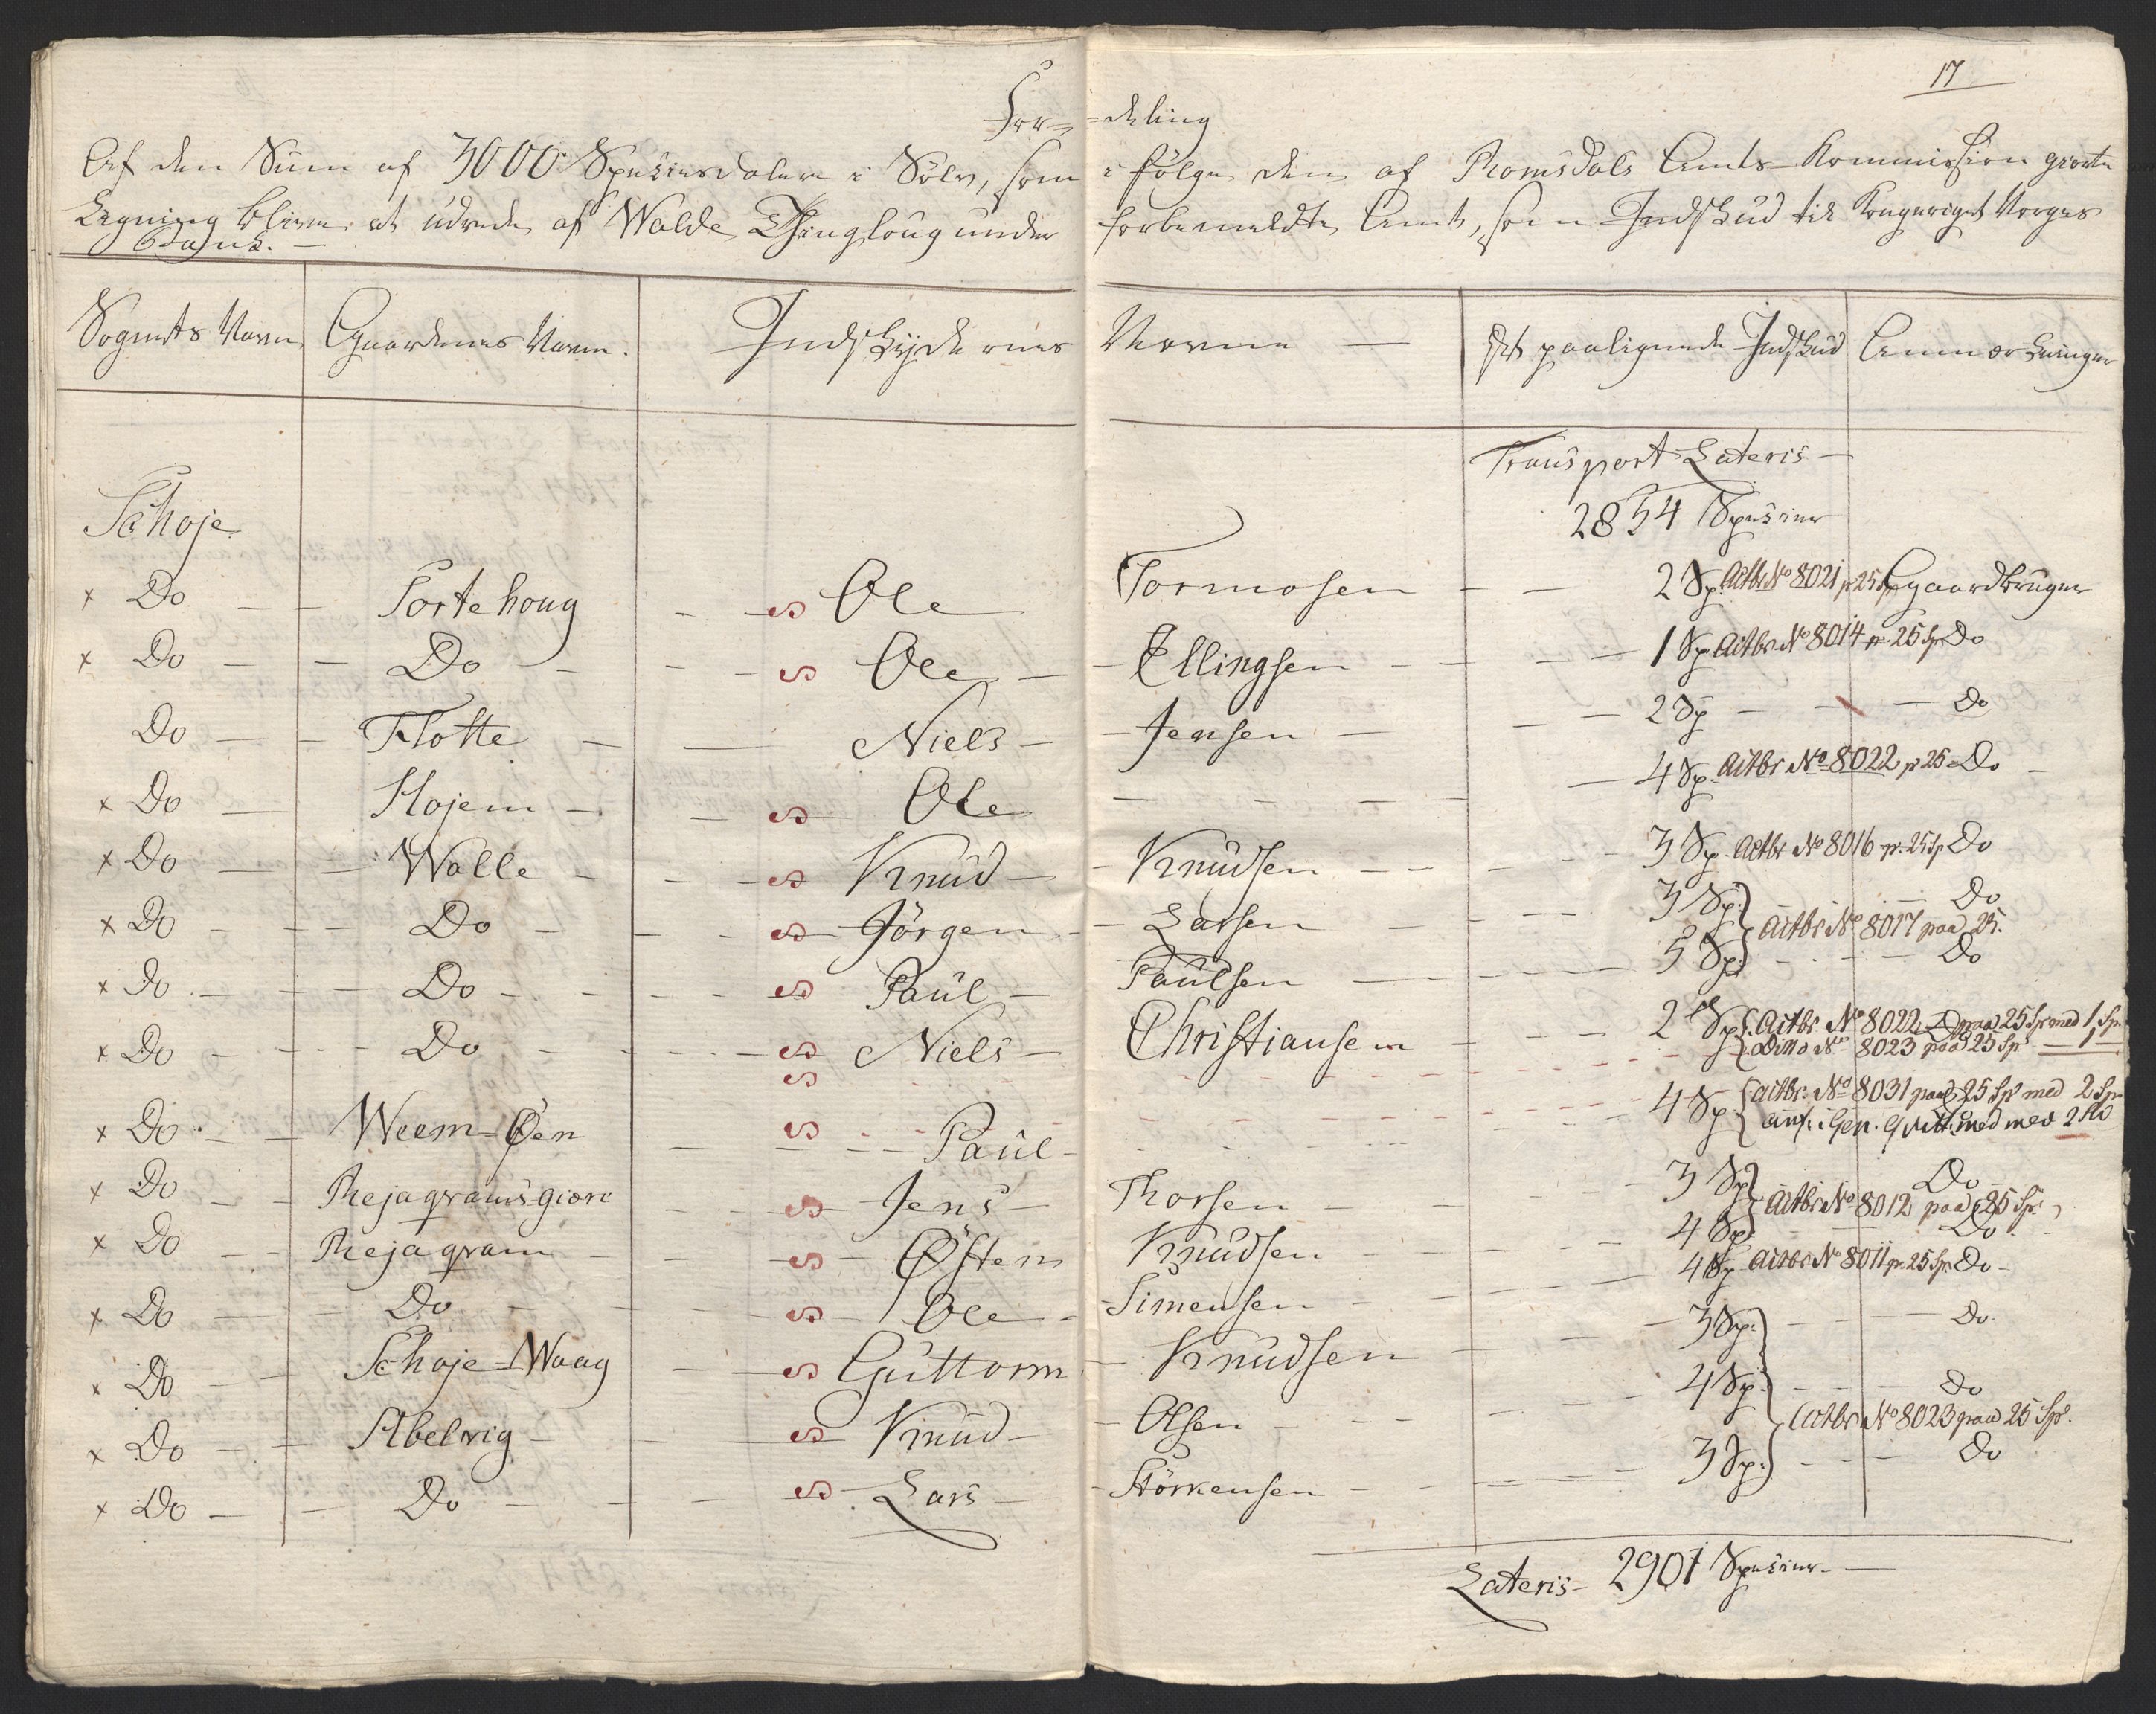 17
For- -deling
Af den Sum af 3000 Speciesdalere i Sölv, som i fölge den af Romsdals Amts-Kommission giorte
Ligning bliver at udrede af Wolde Thinglaug under forbemeldte Amt, som Indskud til Kongeriget Norges
Bank. —
Sognets Navn Gaardenes Navn. Indskÿdernes Navne — Det paalignede Indskud Anmærkninger
Transport Lateris —
Schoje 2854 Specier
x Do — — Tortehoug - - s Ole Tormosen - — 2 Sp. Actbr No 8021 p 25 Sp Gaardbruger
x Do — — Do - - - s Ole — - Ellingsen - - — — 1 Sp. Actbr No 8014 p. 25 Sp Do
Do — - Flotte — — Niels — - Jensen — — — 2 Sp — — — Do
x Do — Hojem — — s Ole — - - - — 4 Sp. Actbr No 8022 p 25 Do -
x Do — — Wolle - - - s Knud — - Knudsen - - - - 3 Sp. Actbr No 8016 p. 25 Sp Do
x Do - - - Do - - - s Jörgen - - Larsen - - - - 3 Sp. } - Do
Actbr No 8017 paa 25.
x Do - - - Do - - - - s Paul — Paulsen — - - - 5 Sp. } - - - Do
x Do - - - Do - - - - s Niels — Christiansen - - 2 Sp. { Actbr. No 8022 paa 25 Sp med 1 Sp.
s { Ditto No 8023 paa 25 Sp — 1 —
x Do - - Weem-Öen - - s - - Paul - - - - 4 Sp. { Actbr. No 8031 paa 25 Sp med 2 Sp
x Do - - Rejagramsgiere - s Jens — Thorsen - - - 3 Sp } Do
Actbr No 8012 paa 25 Sp.
x Do - - Rejagram - - s - Östen Knudsen - - - 4 Sp } Do
x Do — Do - - - s - Ole - - Simensen - - - 4 Sp Actbr No 8011 p. 25 Sp. Do -
x Do - - Schoje-Waag - - s Guttorm - Knudsen - - - 3 Sp. } - - - Do.
x Do - - Abelvig - - s Knud — - Olsen - - - - 4 Sp. } - - - Do
Actbr No 8023 paa 25 Sp.
x Do — - Do - - - s Lars — - Störkensen - - - 3 Sp. } - - - Do
Lateris - 2901 Specier. —